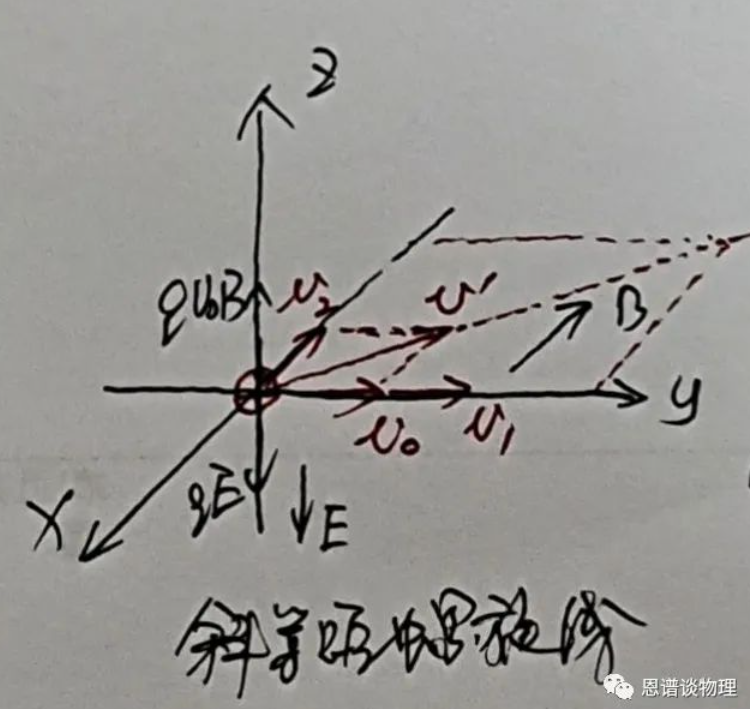 z
qv₀B
v₂
v'
B
y
v₀
v₁
qE
E
X
斜等距螺旋线
恩谱谈物理